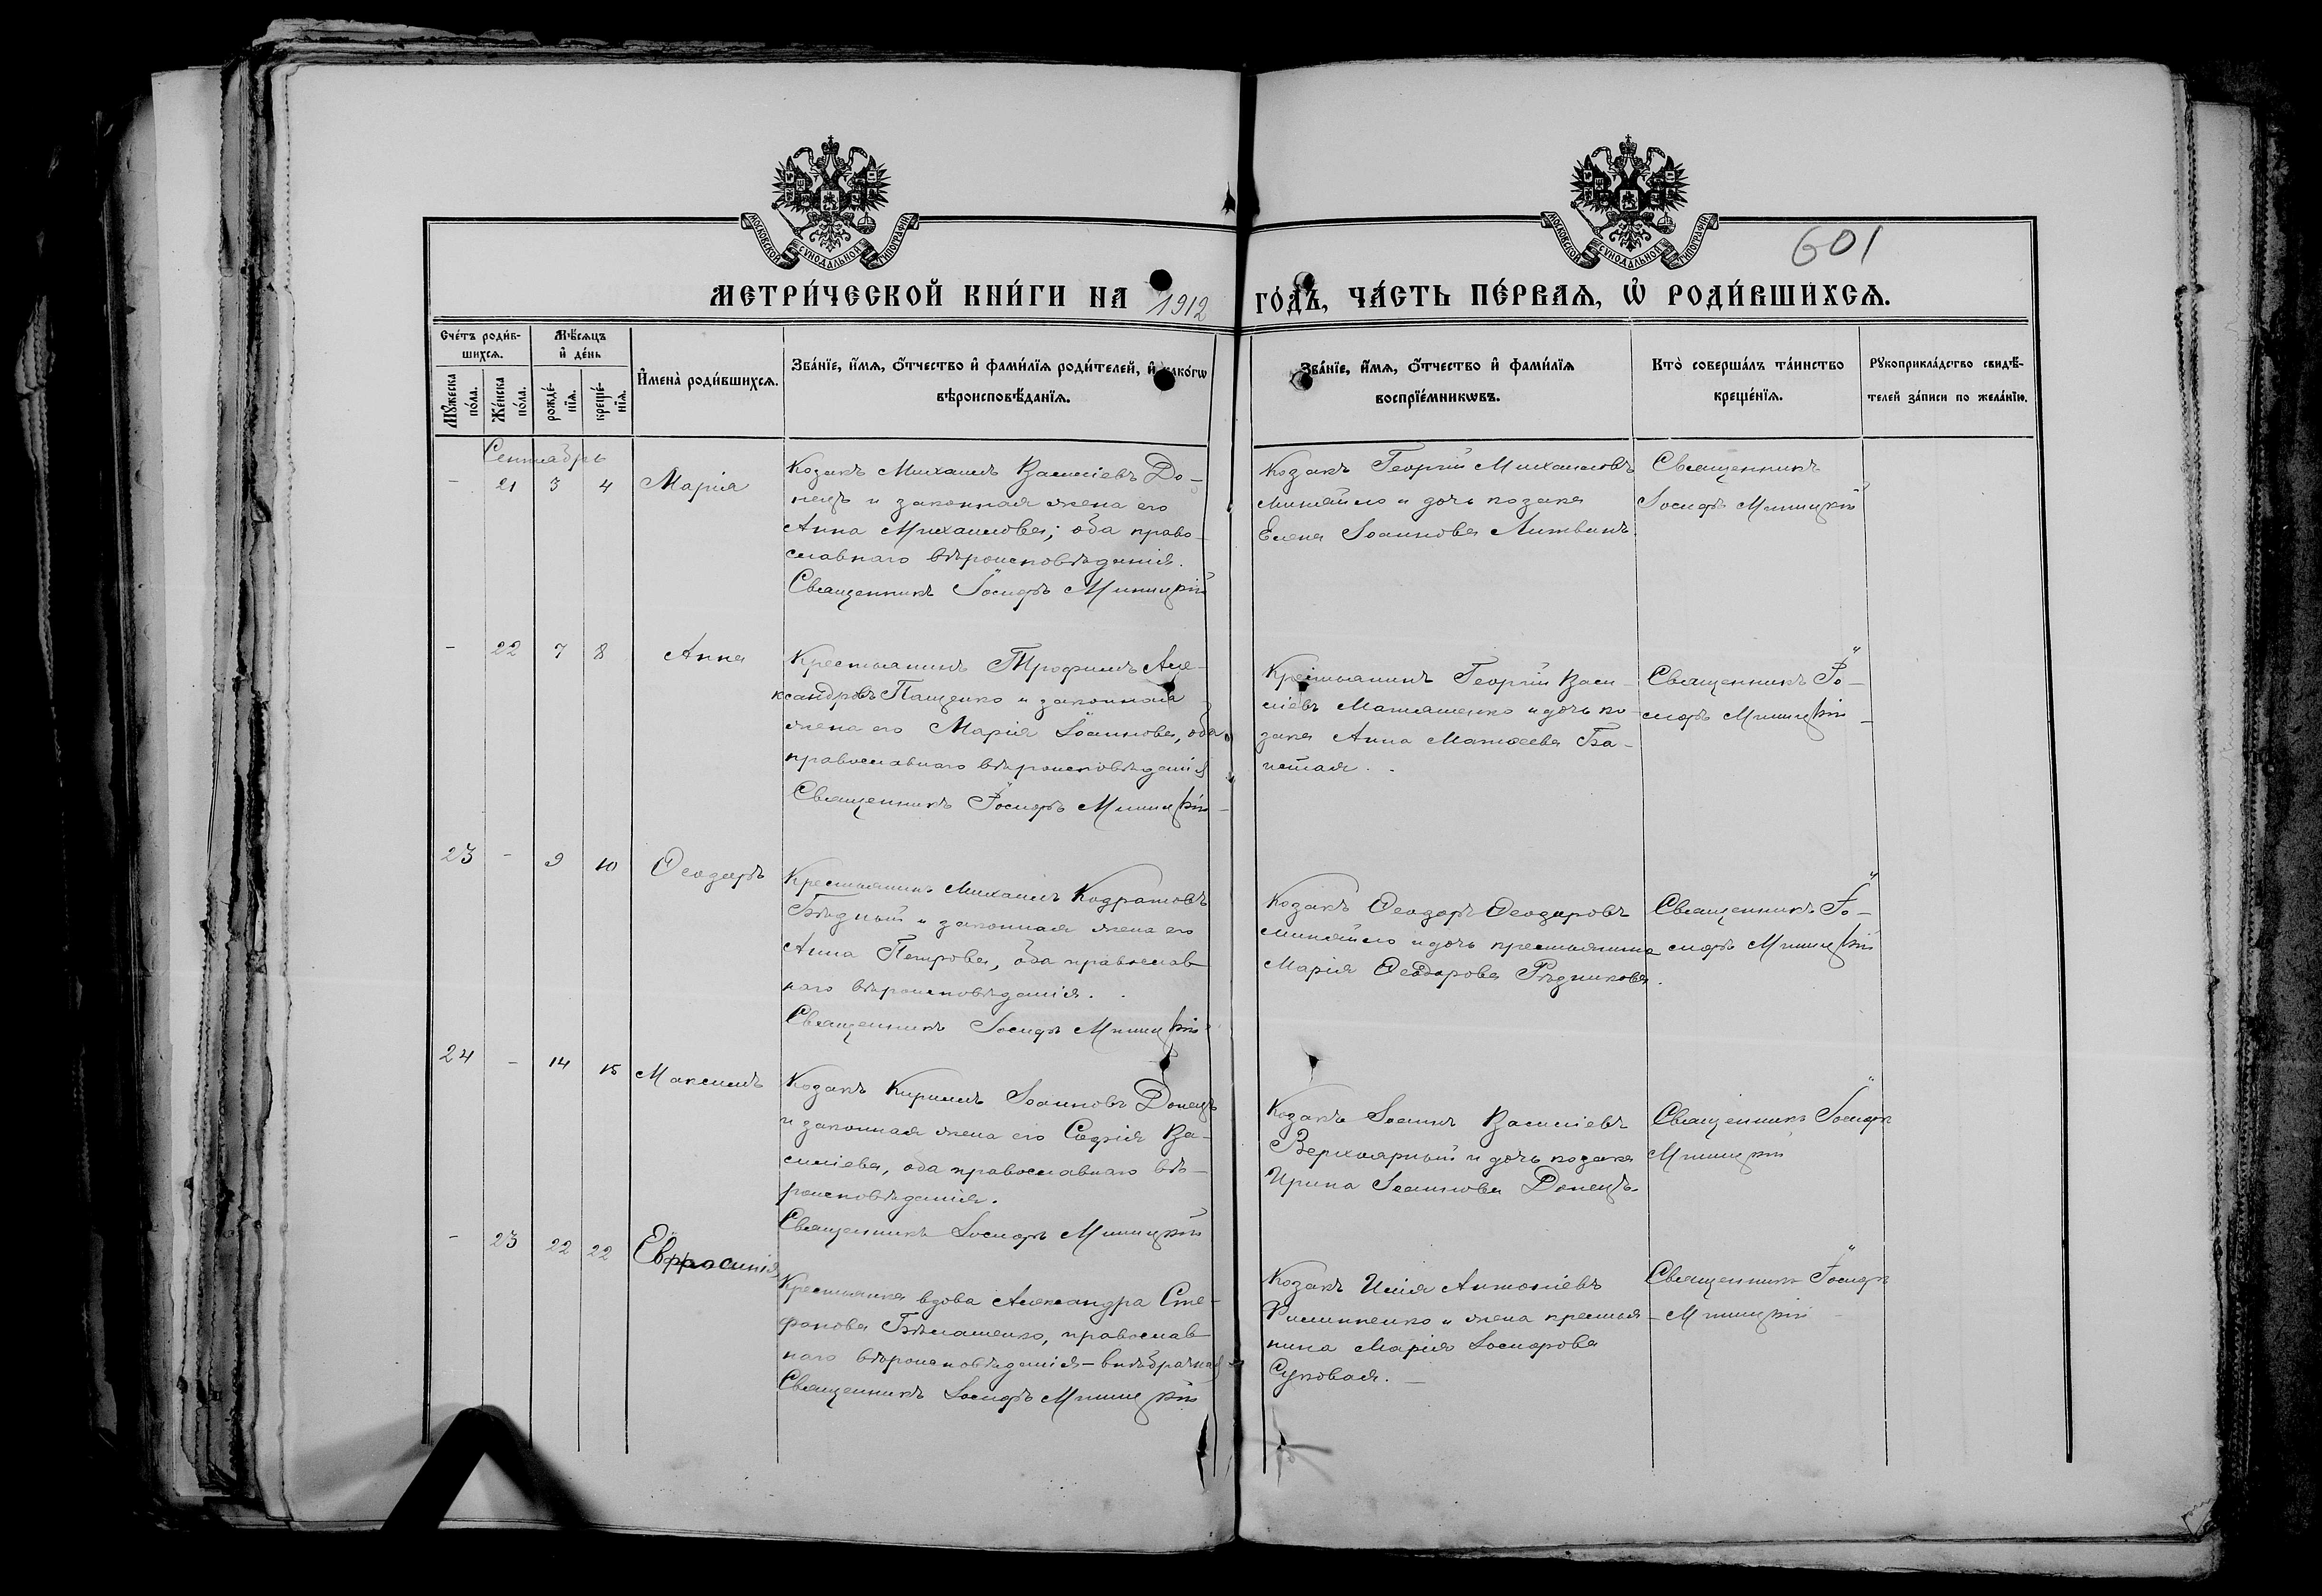 МОСКОВСКОЙ СУНОДАЛЬНОЙ ТИПОГРАФІИ
МОСКОВСКОЙ СУНОДАЛЬНОЙ ТИПОГРАФІИ
601
МЕТРИ́ЧЕСКОЙ КНИ́ГИ НА 1912 ГО́ДЪ, ЧА́СТЬ ПЕ́РВАЯ, Ѡ҆ РОДИ́ВШИХСЯ.
Сче́тъ роди́в-
шихсѧ.
Мѣ́сѧцъ
и҆ де́нь
Мꙋ́жеска
по́ла.
Же́нска
по́ла.
рожде́-
нїѧ.
креще́-
нїѧ.
И҆мена̀ роди́вшихсѧ.
Зва́нїе, и҆́мѧ, ѻ҆́тчество и҆ фами́лїѧ роди́телей, и҆ како́гѡ
вѣроисповѣ́данїѧ.
Зва́нїе, и҆́мѧ, ѻ҆́тчество и҆ фами́лїѧ
воспрїе́мникѡвъ.
Кто̀ соверша́лъ та́инство
креще́нїѧ.
Рꙋкоприкла́дство свидѣ́-
телей за́писи по жела́нїю.
Сентябрь
- 21 3 4 Марія
Козакъ Михаилъ Василіевъ До-
нецъ и законная жена его
Анна Михаилова; оба право-
славнаго вѣроисповѣданія.
Священникъ Іосифъ Миницкій
Козакъ Георгій Михаиловъ
Минайло и дочь козака
Елена Іоаннова Литвинъ.
Священникъ
Іосифъ Миницкій
- 22 7 8 Анна
Крестьянинъ Трофимъ Але-
ксандровъ Пащенко и законная
жена его Марія Іоаннова, оба
православнаго вѣроисповѣданія
Священникъ Іосифъ Миницкій
Крестьянинъ Георгій Васи-
ліевъ Маташенко и дочь ко-
зака Анна Матѳеева
Священникъ Іо-
сифъ Миницкій
23 - 9 10 Ѳеодоръ
Крестьянинъ Михаилъ Кодратовъ
Бѣдный и законная жена его
Анна Петрова, оба православ
наго вѣроисповѣданія.
Священникъ Іосифъ Миницкій
Козакъ Ѳеодоръ Ѳеодоровъ
Минайло и дочь крестьянина
Марія Ѳеодорова Рѣдникова.
Священникъ Іо-
сифъ Миницкій
24 - 14 15 Максимъ
Козакъ Кириллъ Іоанновъ Донецъ
и законная жена его Софія Ва-
силіева, оба православнаго вѣ-
роисповѣданія.
Священникъ Іосифъ Миницкій
Козакъ Іоаннъ Василіевъ
и дочь козака
Ирина Іоаннова Донецъ.
Священникъ Іосифъ
Миницкій
- 23 22 22 Евфросинія
Крестьянка вдова Александра Сте-
фанова Бѣлашенко, православ
наго вѣроисповѣданія - внѣбрачная
Священникъ Іосифъ Миницкій
Козакъ Илія Антоніевъ
Филиппенко и жена крестья-
нина Марія Іосифова
Суховая.
Священникъ Іосифъ
Миницкій